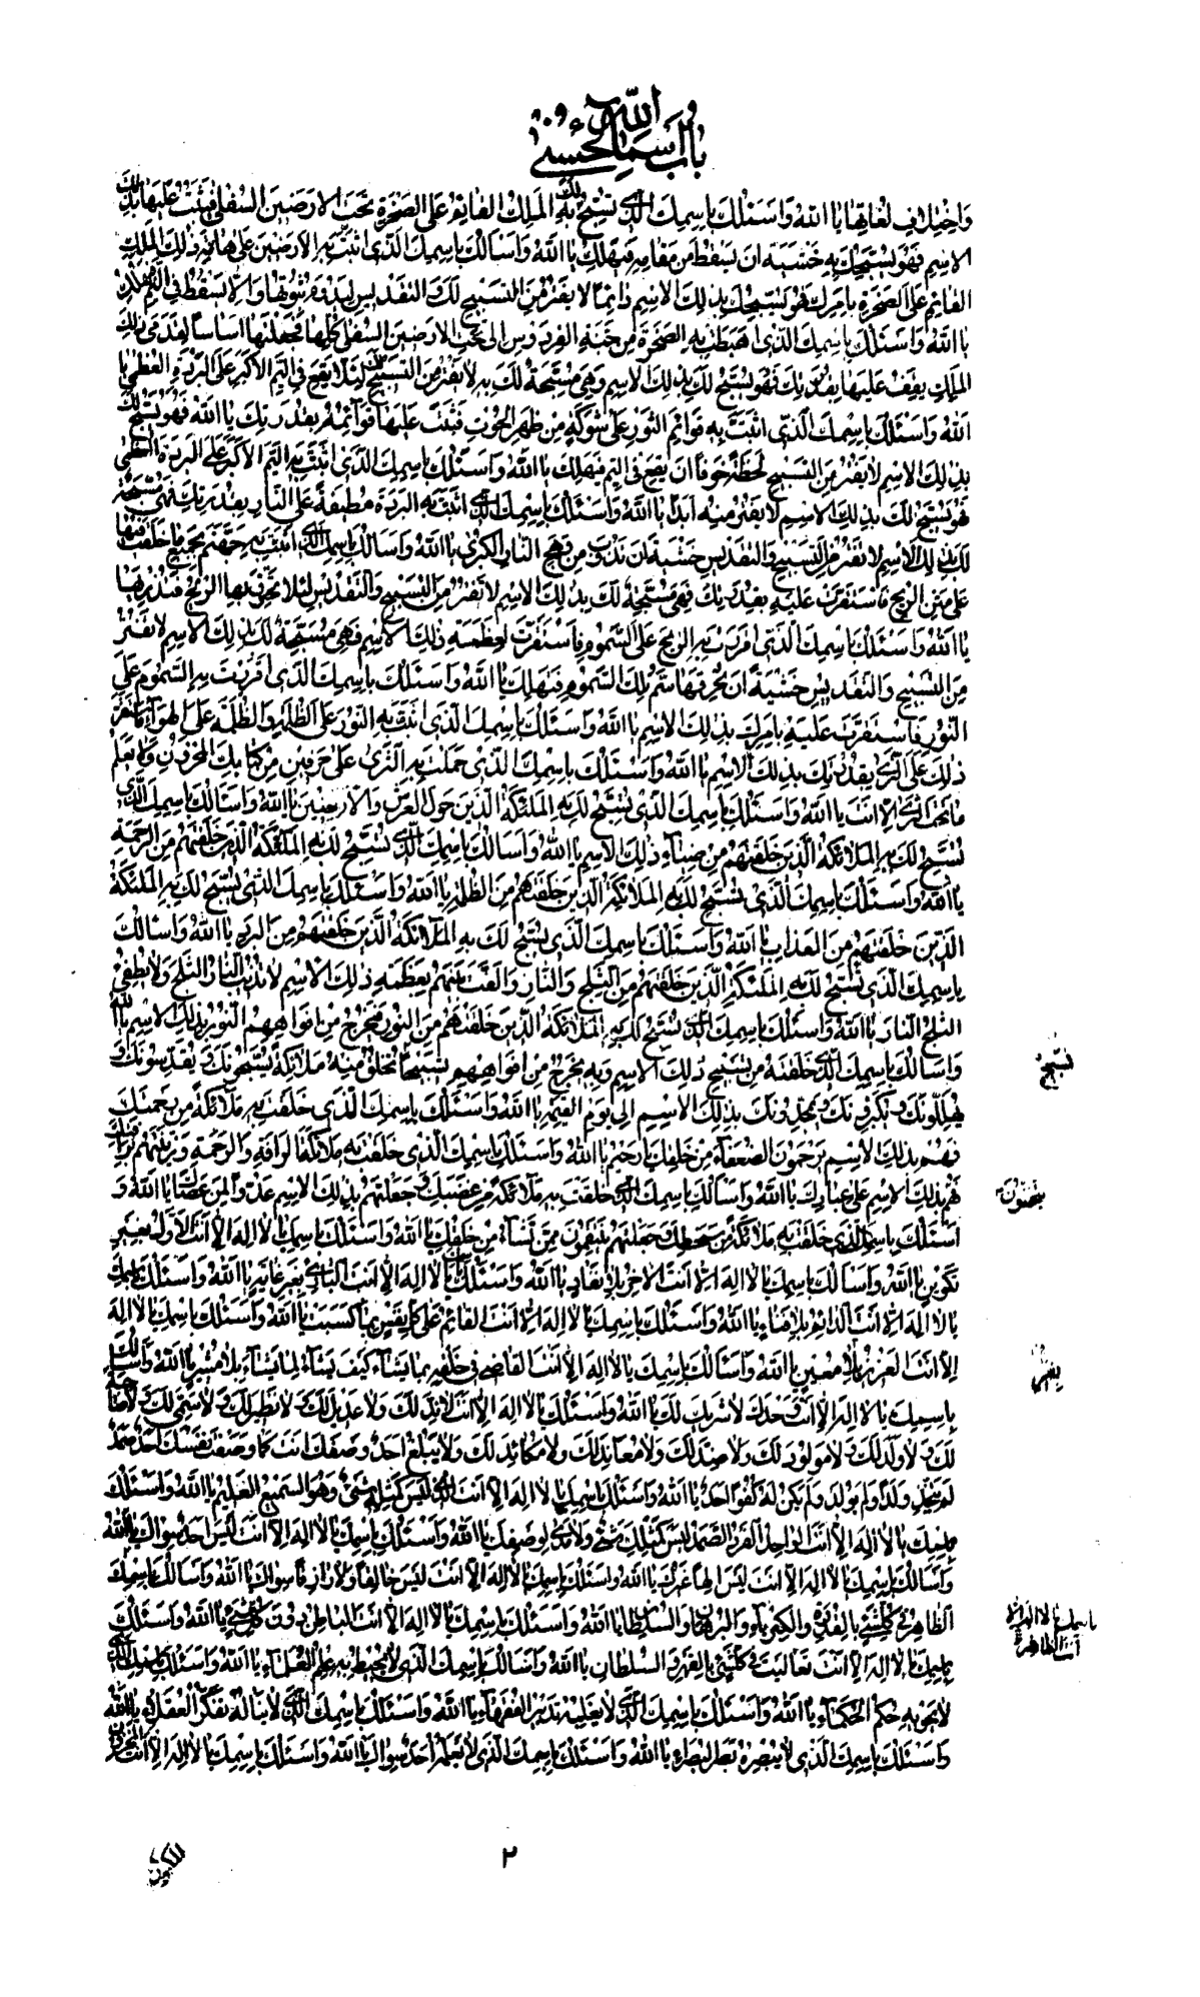 باب أسماء الله الحسنى
واختلاف لغاتها يا الله واسئلك باسمك الذي تسبح لك به الملك القائم على الصخرة تحت الارضين السفلى فثبت عليها بذلك
الاسم فهو يسبحك به خشية ان يسقط من مقامه فيهلك يا الله واسالك باسمك الذي اثبت به الارضين على هامة ذلك الملك
القائم على الصخرة بامرك فهو يسبحك بذلك الاسم دائما لا يفتر من التسبيح لك والتقديس
يا الله واسئلك باسمك الذي اهبطت به الصخرة من جنة الفردوس الى تحت الارضين السفلى كلها فجعلتها اساسا لقدمي ذلك
الملك يقف عليها بقدرتك فهو يسبح لك بذلك الاسم وهي مسبحة لك به لا يفتر من التسبيح لك لئلا يقع في اليم الاكبر على البردة العظمى يا
الله واسئلك باسمك الذي اثبت به قوائم الثور على شوكة من ظهر الحوت فثبت عليها قوائمه بقدرتك يا الله فهو يسبح لك
بذلك الاسم لا يفتر من التسبيح لحظة خوفا ان يقع في اليم فيهلك يا الله واسئلك باسمك الذي اثبت به اليم الاكبر على البردة العظمى
فهو يسبح لك بذلك الاسم لا يفتر منه ابدا يا الله واسئلك باسمك الذي اثبت به البردة مطبقة على النار بقدرتك فهي مسبحة
لك بذلك الاسم لا تفتر من التسبيح والتقديس خشية ان تذوب من وهج النار الكبرى يا الله واسالك باسمك الذي اثبت به جهنم بجميع ما خلقت فيها
على متن الريح فاستقرت عليه بقدرتك فهي مسبحة لك بذلك الاسم لا تفتر من التسبيح والتقديس لئلا
يا الله واسئلك باسمك الذي اقررت به الريح على السموم فاستقرت لعظمة ذلك الاسم فهي مسبحة لك بذلك الاسم لا تفتر
من التسبيح والتقديس خشية ان تحرقها سم تلك السموم فتهلك يا الله واسئلك باسمك الذي اقررت به السموم على
النور فاستقرت عليه بامرك بذلك الاسم يا الله واسئلك باسمك الذي اثبت به النور على الظلمة والظلمة على الهواء
ذلك على الثرى بقدرتك بذلك الاسم يا الله واسئلك باسمك الذي حملت به الثرى على حرفين من كتابك المخزون ولا يعلم
ما تحت الثرى الا انت يا الله واسئلك باسمك الذي يسبح لك به الملئكة الذين حول العرش والارضين يا الله واسالك باسمك الذي
يسبح لك به الملائكة الذين خلقتهم من ضياء ذلك الاسم يا الله واسالك باسمك الذي يسبح لك به الملائكة الذين خلقتهم من الرحمة
يا الله واسئلك باسمك الذي يسبح لك به الملائكة الذين خلقتهم من الظلمة يا الله واسئلك باسمك الذي يسبح لك به الملئكة
الذين خلقتهم من العذاب يا الله واسئلك باسمك الذي يسبح لك به الملائكة الذين خلقتهم من البرد يا الله واسالك
باسمك الذي يسبح لك به الملئكة الذين خلقتهم من الثلج والنار والفت بينهم بعظمة ذلك الاسم لا تذيب النار الثلج ولا يطفئ
الثلج النار يا الله واسئلك باسمك الذي يسبح لك به الملائكة الذين خلقتهم من النور فيخرج من افواههم النور بذلك الاسم يا الله
واسالك باسمك الذي خلقته من تسبيح ذلك الاسم وبه يخرج من افواههم تسبيحا تخلق منه ملائكة يسبحونك ويقدسونك و
يهللونك ويكبرونك ويمجدونك بذلك الاسم الى يوم القيمة يا الله واسئلك باسمك الذي خلقت به ملائكة من رحمتك
فهم بذلك الاسم يرحمون الضعفاء من خلقك يا رحيم يا الله واسئلك باسمك الذي خلقت به ملائكة الرافة والرحمة
فهم بذلك الاسم على عبادك يا الله واسالك باسمك الذي خلقت به ملائكة من غضبك وجعلتهم بذلك الاسم
اسئلك باسمك الذي خلقت به ملائكة من سخطك جعلتهم ينتقمون ممن تشاء من خلقك يا الله واسئلك باسمك يا لا اله الا انت الاول بغير
تكوين يا الله واسالك باسمك يا لا اله الا انت الاخر بلا نفاد يا الله واسئلك باسمك يا لا اله الا انت الباقي بغير غاية يا الله واسئلك باسمك
يا لا اله الا انت الدائم بلا فناء يا الله واسئلك باسمك يا لا اله الا انت القائم على كل نفس بما كسبت يا الله واسئلك باسمك يا لا اله
الا انت العزيز بلا معين يا الله واسالك باسمك يا لا اله الا انت القاضي في خلقه بما يشاء كيف يشاء لما يشاء بلا مشير يا الله واسالك
باسمك يا لا اله الا انت وحدك لا شريك لك يا الله واسئلك يا لا اله الا انت لا ند لك ولا عديل لك ولا نظير لك ولا سمي لك
لك ولا ولد لك ولا مولود لك ولا ضد لك ولا معاند لك ولا مكائد لك ولا يبلغ احد وصفك انت كما وصفت نفسك احد صمد
ولم يولد ولم يكن له كفوا احد يا الله واسئلك باسمك يا لا اله الا انت الذي ليس كمثله شيء وهو السميع العليم يا الله واسئلك
باسمك يا لا اله الا انت الواحد الفرد الصمد ليس كمثلك شيء يا الله واسئلك باسمك يا لا اله الا انت ليس احد سواك يا الله
واسالك باسمك يا لا اله الا انت ليس الها غيرك يا الله واسئلك باسمك يا لا اله الا انت ليس خالقا ولا رازقا سواك يا الله واسالك باسمك
الظاهر في كل شيء بالقدرة والكبرياء والبرهان والسلطان يا الله واسئلك باسمك يا لا اله الا انت الباطن دون كل شيء يا الله واسئلك
باسمك يا لا اله الا انت تعاليت على كل شيء بالقهر والسلطان يا الله واسالك باسمك الذي لا يحيط به علم العلماء يا الله واسئلك باسمك الذي
لا يحويه حكم الحكماء يا الله واسئلك باسمك الذي لا يغلبه تدبر الفقهاء يا الله واسئلك باسمك الذي لا يناله تفكر العقلاء يا الله
واسئلك باسمك الذي لا يبصره بصر البصراء يا الله واسئلك باسمك الذي لا يعلمه احد سواك يا الله واسئلك باسمك يا لا اله الا انت المخزون
تسبيح
باسمك يا لا اله الا
انت الظاهر
٢
المكنون